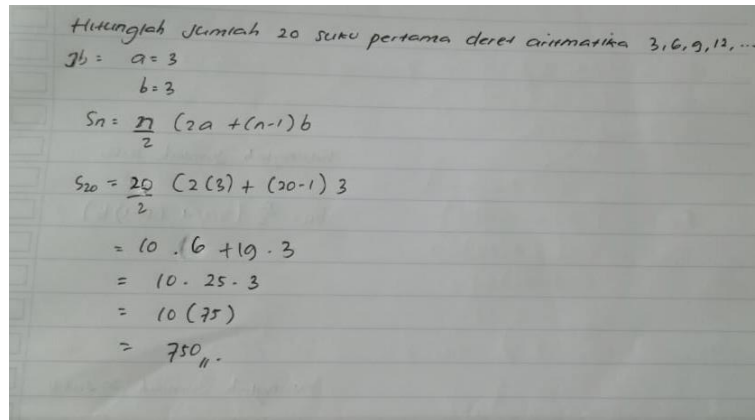 Hitunglah Jumlah 20 suku pertama deret aritmatika 3, 6, 9, 12, ...
Jb : a = 3
b = 3
Sn = n/2 (2a + (n-1) b
S20 = 20/2 (2(3) + (20-1) 3
= 10 . (6 + 19 . 3
= 10 . 25 . 3
= 10 (75)
= 750,,.